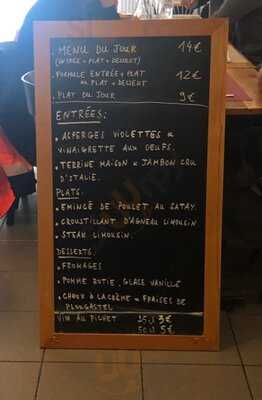 . MENU DU JOUR 14€
(ENTRÉE + PLAT + DESSERT)
. FORMULE ENTRÉE + PLAT 12€
OU PLAT + DESSERT
. PLAT DU JOUR 9€
ENTRÉES:
. ASPERGES VIOLETTES &
VINAIGRETTE AUX OEUFS.
. TERRINE MAISON & JAMBON CRU
D'ITALIE.
PLATS.
. EMINCÉ DE POULET AU SATAY.
. CROUSTILLANT D'AGNEAU LIMOUSIN
. STEAK LIMOUSIN.
DESSERTS.
. FROMAGES
. POMME ROTIE, GLACE VANILLE
. CHOUX À LA CRÈME & FRAISES DE
PLOUGASTEL
VIN AU PICHET 25cl 3€
50cl 5€